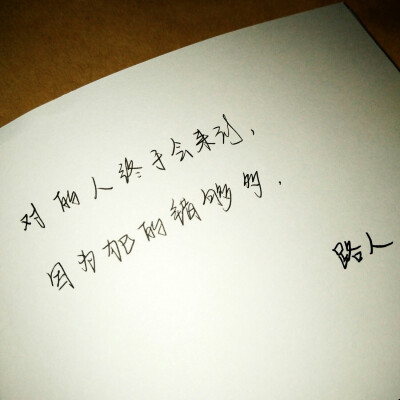 对的人终于会来到，
因为犯的错够多．
路人